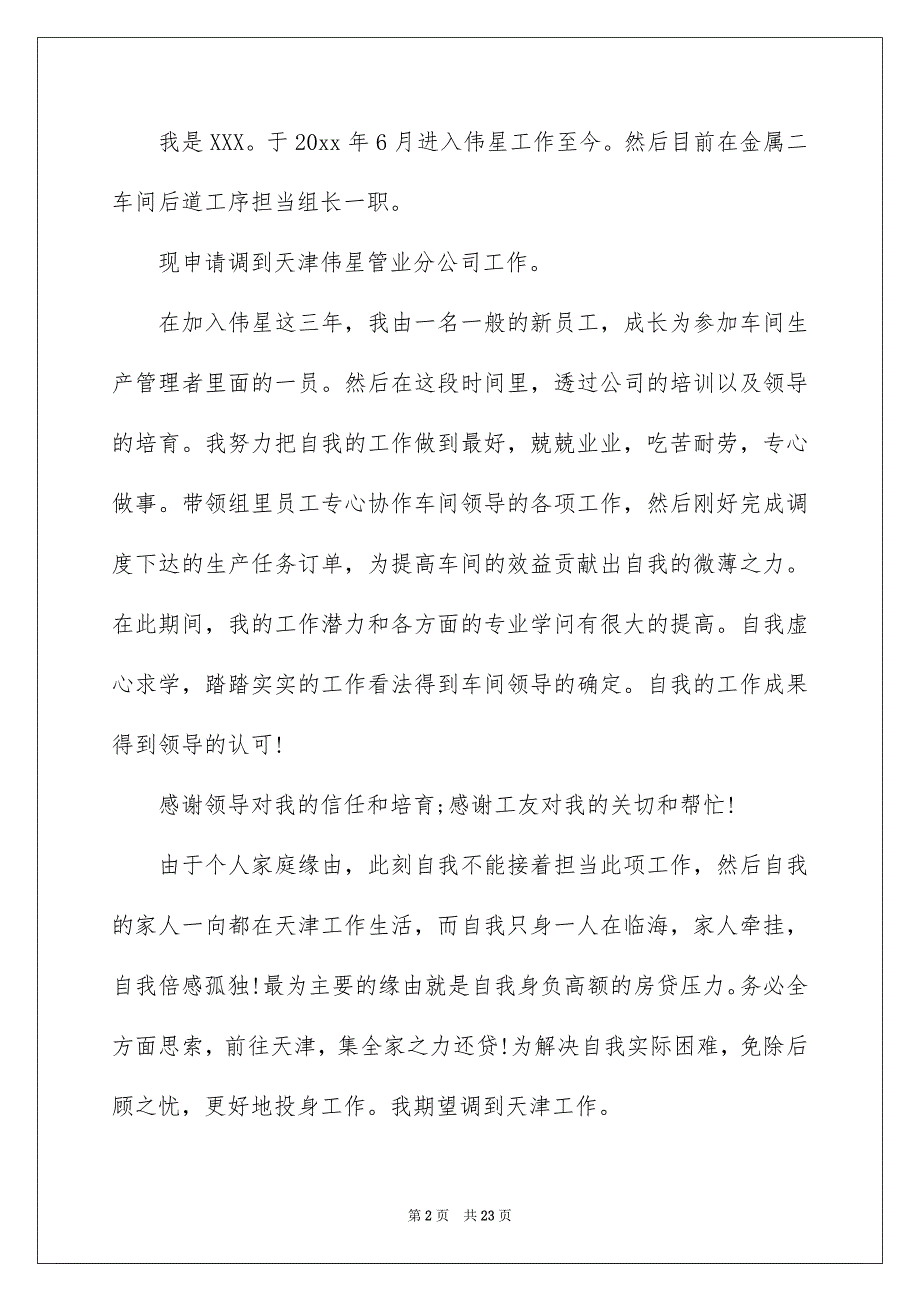 我是 XXX。于 20xx 年 6 月进入伟星工作至今。然后目前在金属二
车间后道工序担当组长一职。
现申请调到天津伟星管业分公司工作。
在加入伟星这三年，我由一名一般的新员工，成长为参加车间生
产管理者里面的一员。然后在这段时间里，透过公司的培训以及领导
的培育。我努力把自我的工作做到最好，兢兢业业，吃苦耐劳，专心
做事。带领组里员工专心协作车间领导的各项工作，然后刚好完成调
度下达的生产任务订单，为提高车间的效益贡献出自我的微薄之力。
在此期间，我的工作潜力和各方面的专业学问有很大的提高。自我虚
心求学，踏踏实实的工作看法得到车间领导的确定。自我的工作成果
得到领导的认可!
感谢领导对我的信任和培育;感谢工友对我的关切和帮忙!
由于个人家庭缘由，此刻自我不能接着担当此项工作，然后自我
的家人一向都在天津工作生活，而自我只身一人在临海，家人牵挂，
自我倍感孤独!最为主要的缘由就是自我身负高额的房贷压力。务必全
方面思索，前往天津，集全家之力还贷!为解决自我实际困难，免除后
顾之忧，更好地投身工作。我期望调到天津工作。
第 2 页 共 23 页